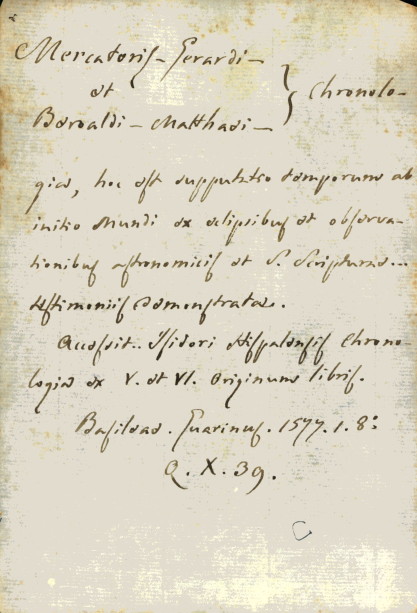 Mercatoris - Gerardi -
et } Chronolo-
Beroaldi - Matthaei -
gia, hoc est supputatio temporum ab
initio Mundi ex eclipsibus et observa-
tionibus astronomicis et S. Scripturae...
testimoniis demonstrata.
Accessit.. Isidori Hispalensis Chrono-
logia ex V. et VI. Originum libris.
Basileae. Guarinus. 1577. 1. 8:
Q. X. 39.